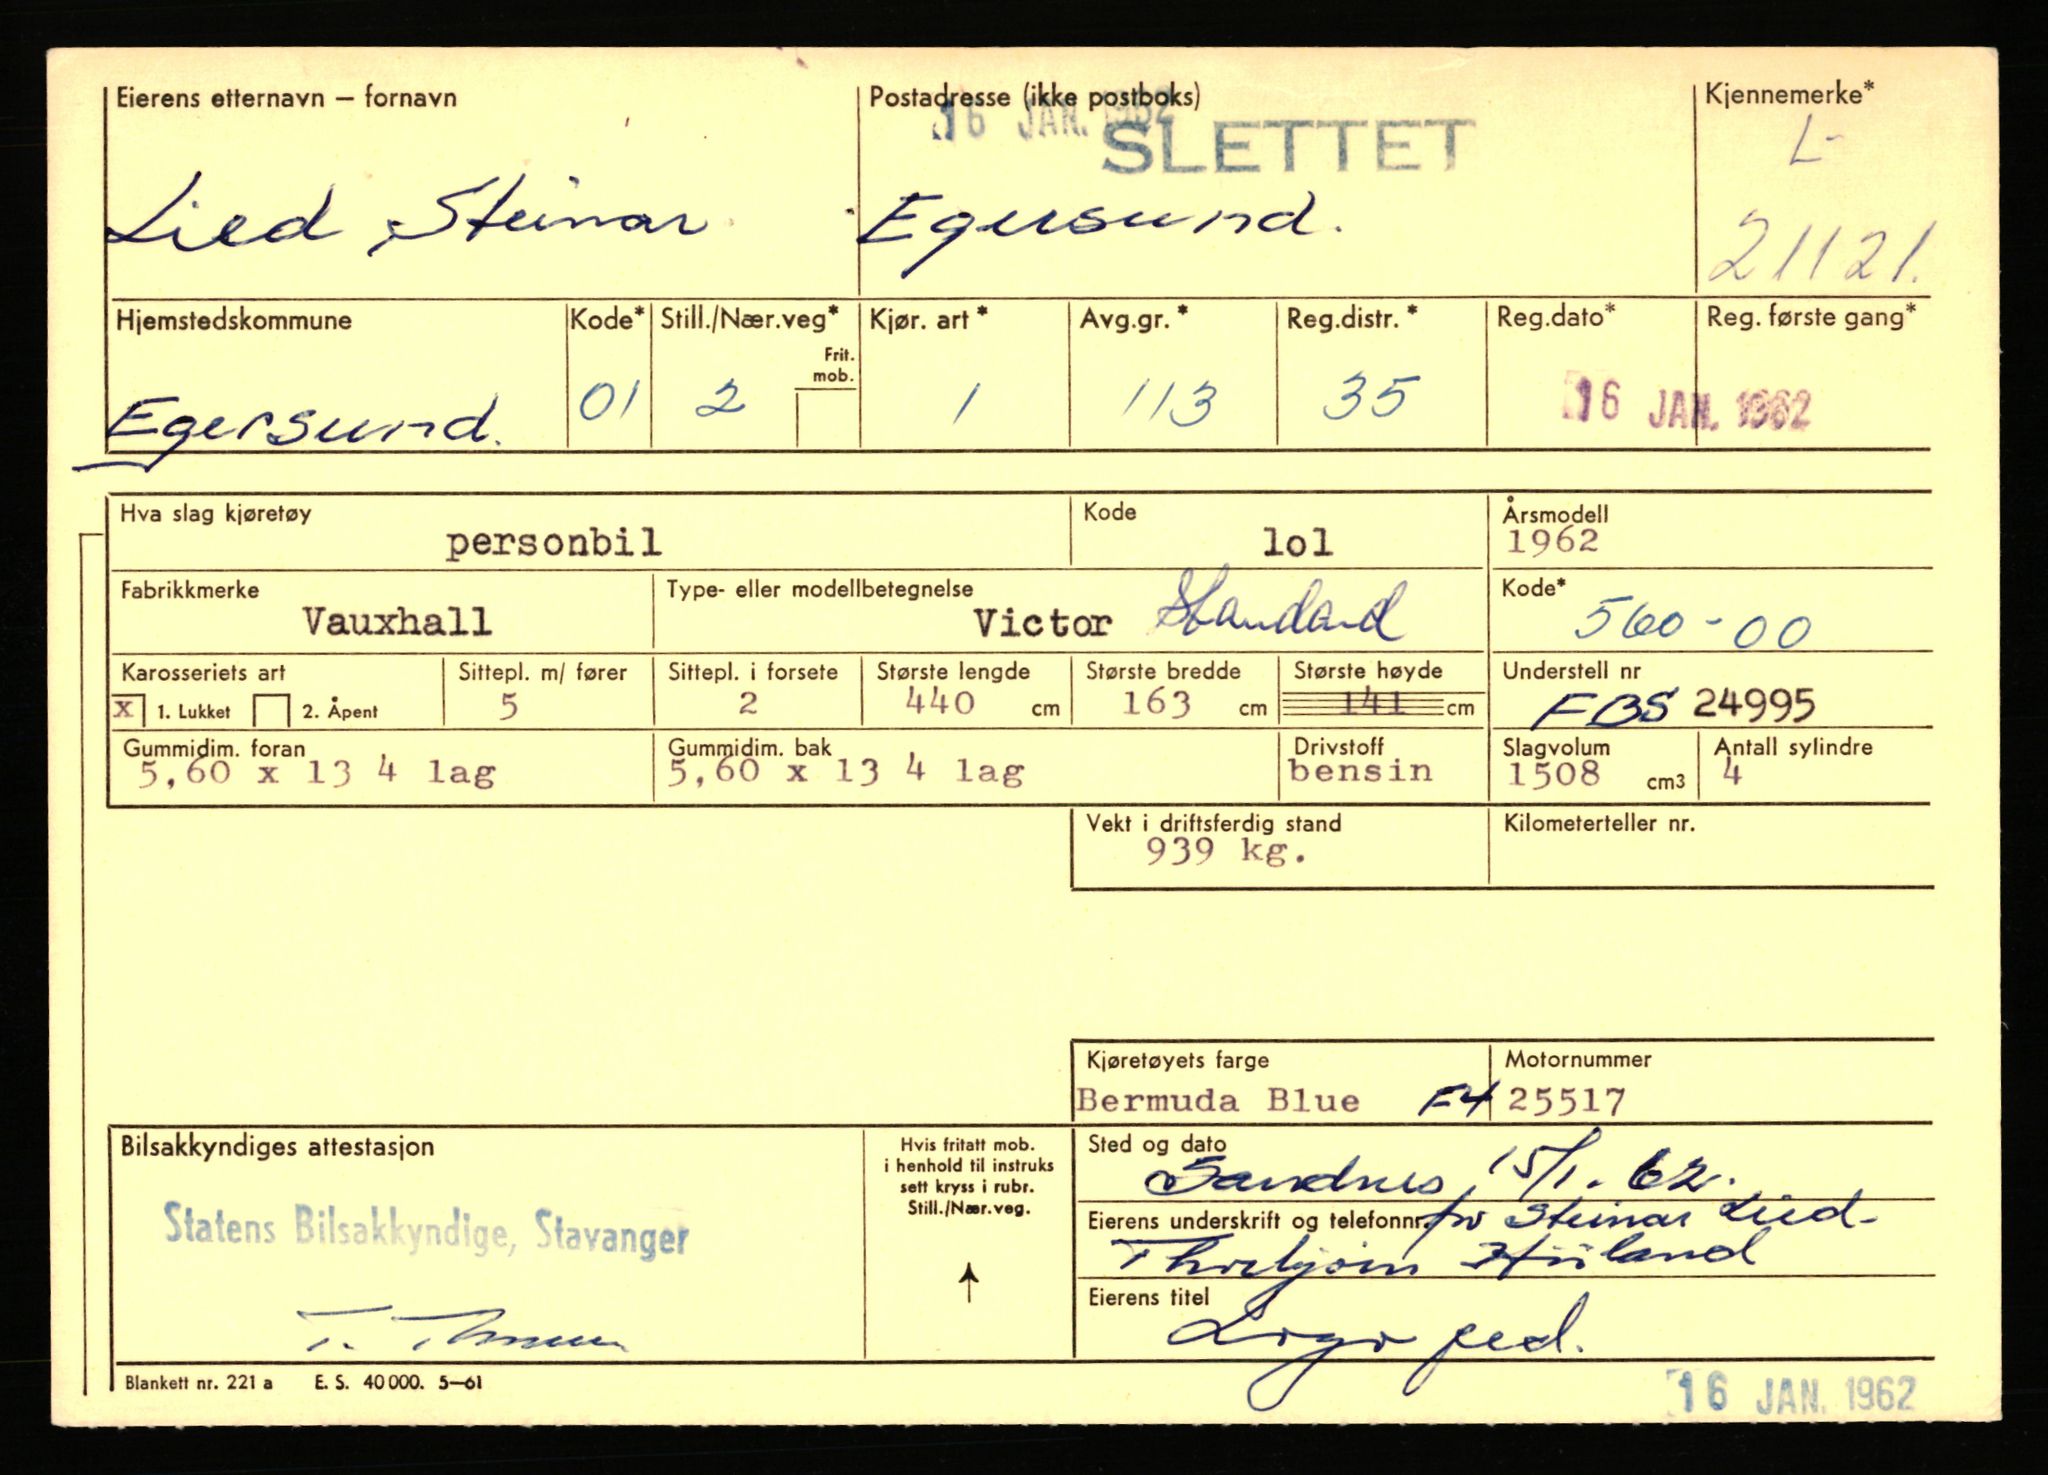 Eierens etternavn – fornavn
Postadresse (ikke postboks)
Kjennemerke*
16 JAN. 1962
SLETTET
L-
Lied, Steinar
Egersund.
21121.
Hjemstedskommune
Kode*
Still./Nær.veg*
Frit. mob.
Kjør. art *
Avg.gr. *
Reg.distr. *
Reg.dato*
Reg. første gang*
Egersund.
01
2
1
113
35
16 JAN. 1962
Hva slag kjøretøy
Kode
Årsmodell
personbil
lol
1962
Fabrikkmerke
Type- eller modellbetegnelse
Kode*
Vauxhall
Victor Standard
560-00
Karosseriets art
Sittepl. m/ fører
Sittepl. i forsete
Største lengde
Største bredde
Største høyde
Understell nr
x 1. Lukket
2. Åpent
5
2
440 cm
163 cm
141 cm
FBS 24995
Gummidim. foran
Gummidim. bak
Drivstoff
Slagvolum
Antall sylindre
5,60 x 13 4 lag
5,60 x 13 4 lag
bensin
1508 cm3
4
Vekt i driftsferdig stand
Kilometerteller nr.
939 kg.
Kjøretøyets farge
Motornummer
Bermuda Blue
F4 25517
Bilsakkyndiges attestasjon
Hvis fritatt mob.
i henhold til instruks
sett kryss i rubr.
Still./Nær.veg.
Sted og dato
Sandnes, 15/1. 62.
Statens Bilsakkyndige, Stavanger
Eierens underskrift og telefonnr.
for Steinar Lied-
Thorbjørn Hüland
Eierens titel
Blankett nr. 221 a
E. S. 40 000. 5–61
16 JAN. 1962